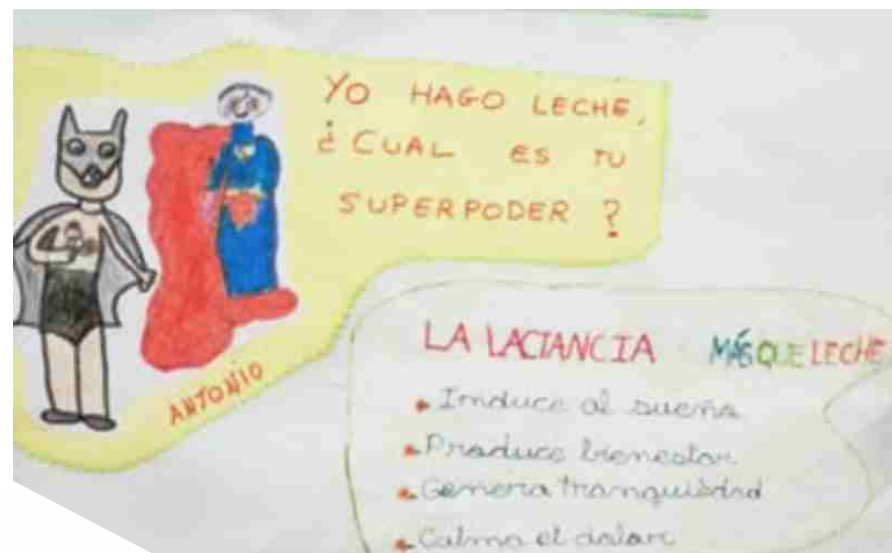 YO HAGO LECHE,
¿CUAL ES TU
SUPERPODER ?
ANTONIO
LA LACTANCIA MÁS QUE LECHE
Induce al sueño
Produce bienestar
Genera tranquilidad
Calma el dolor